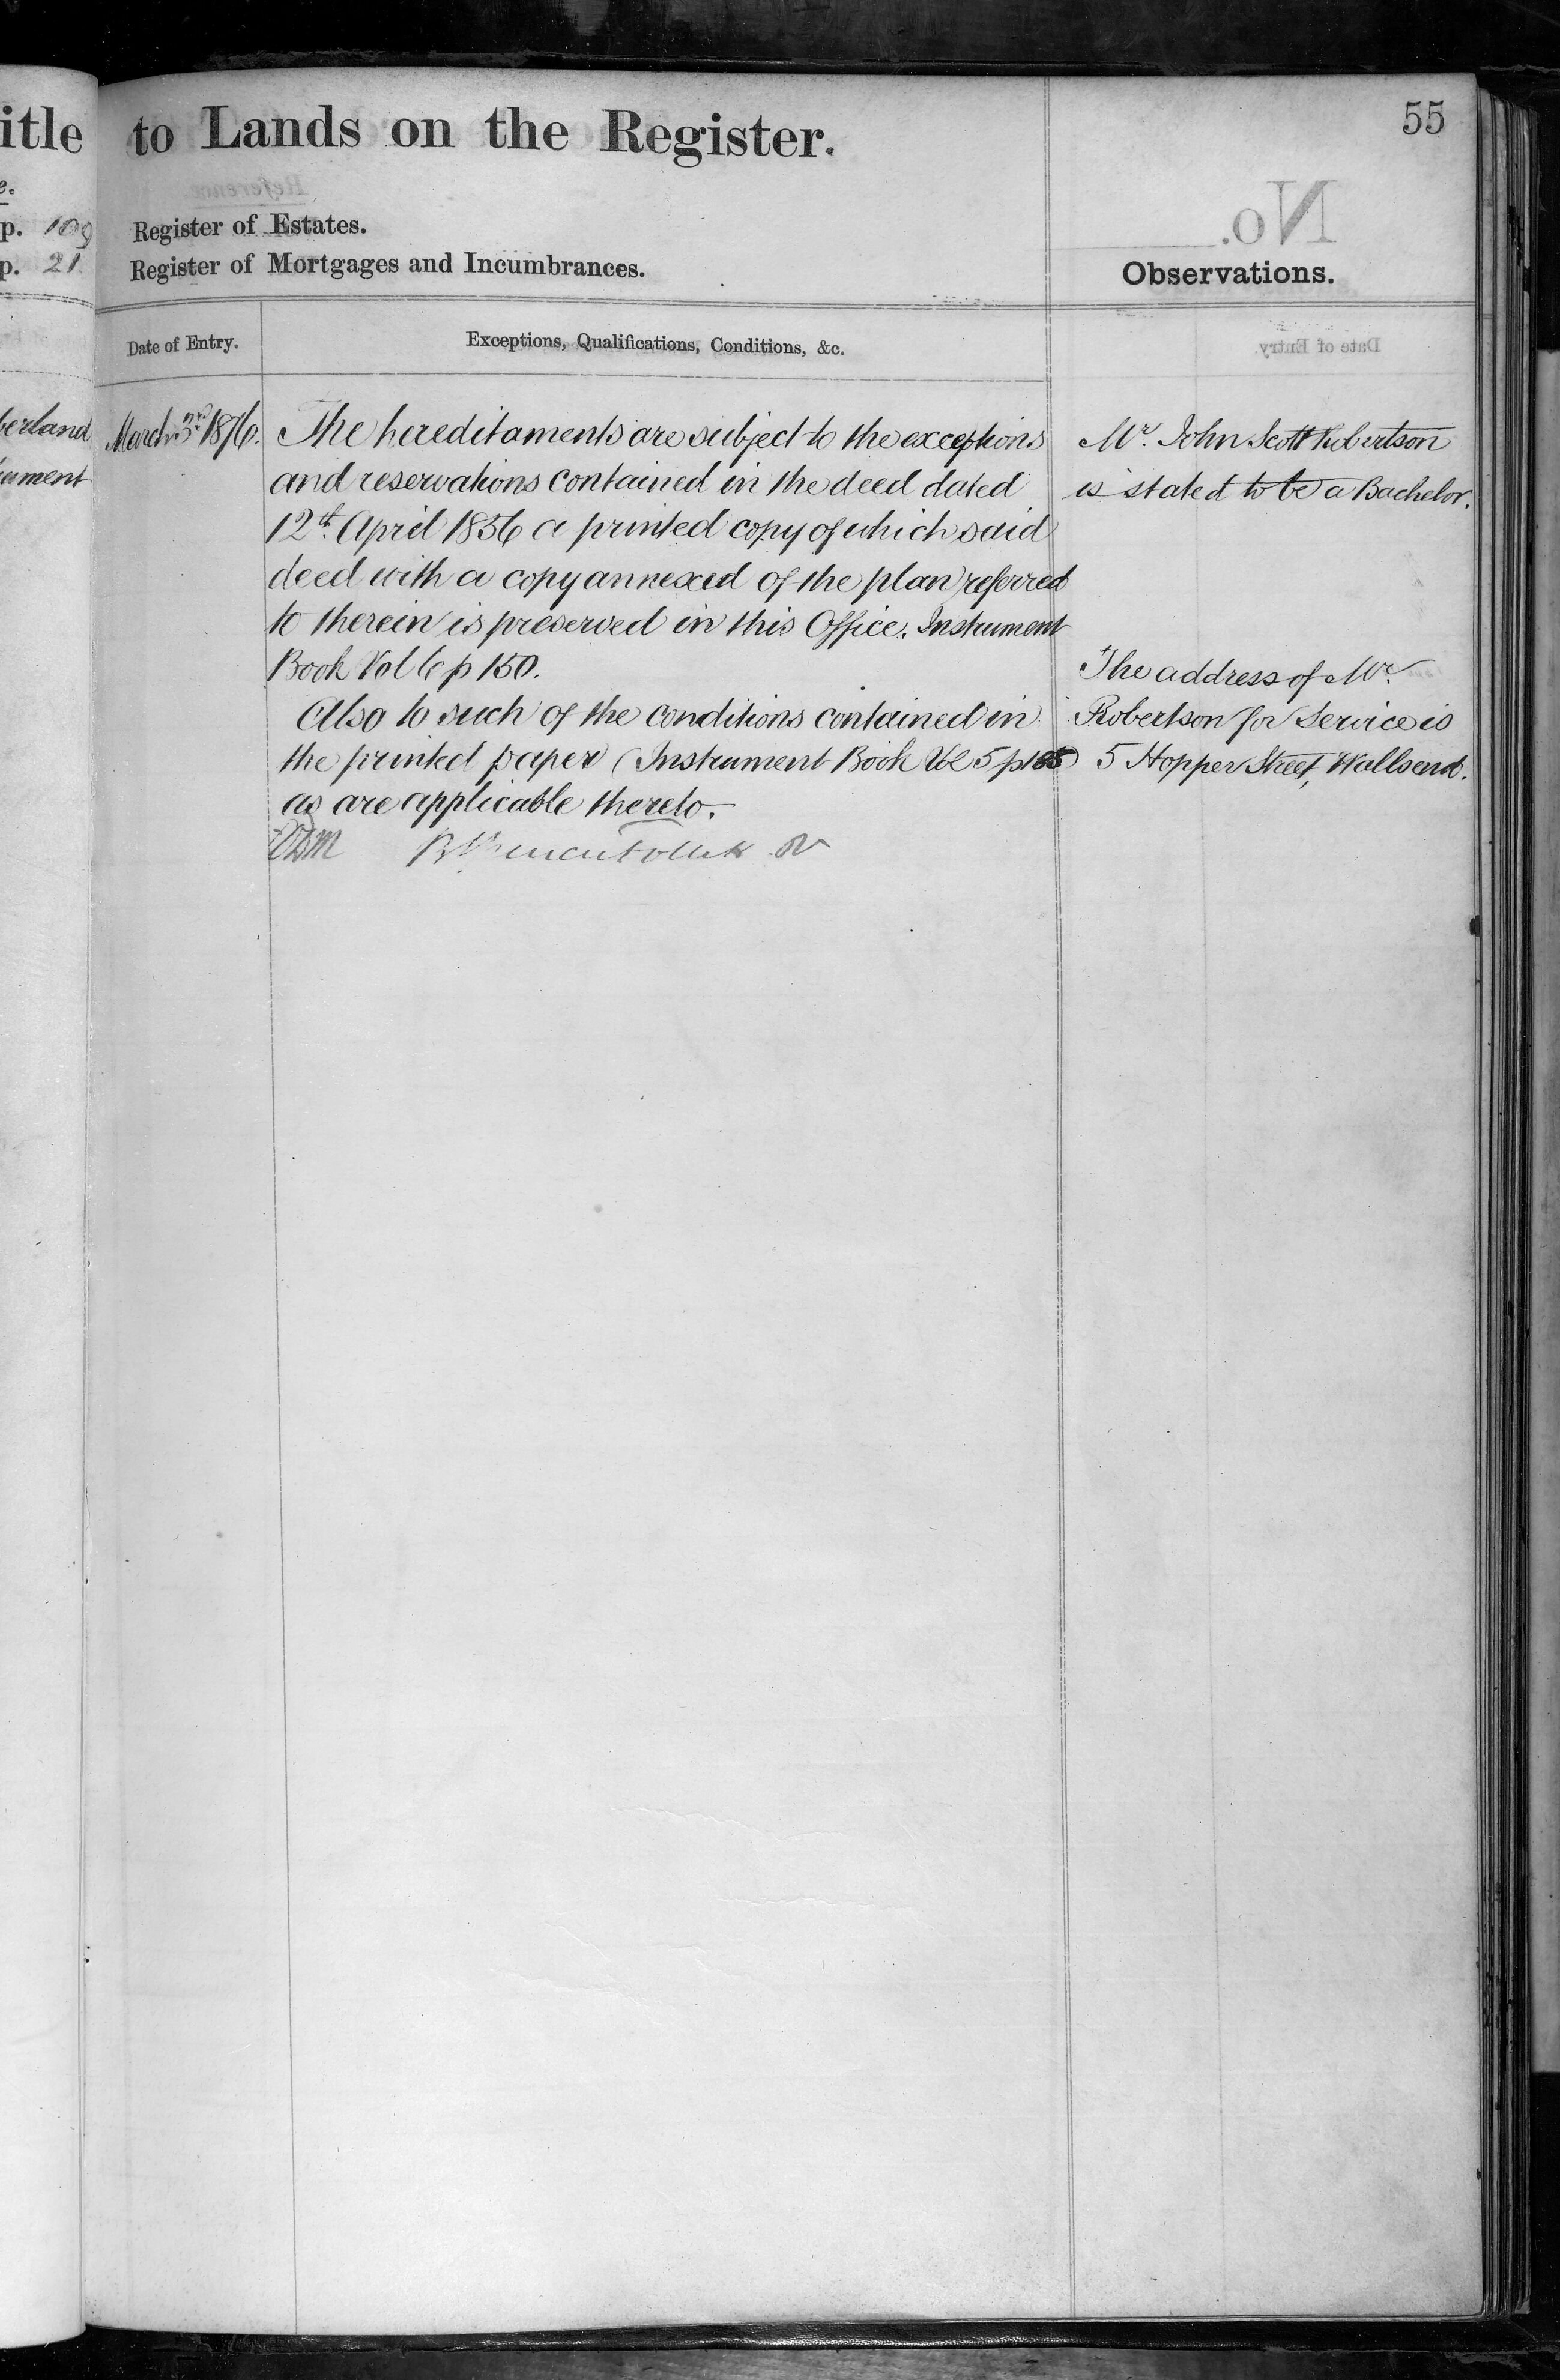 55
itle to Lands on the Register.
e.
p. 109 Register of Estates.
p. 21 Register of Mortgages and Incumbrances.
No.
Observations.
Date of Entry.
Exceptions, Qualifications, Conditions, &c.
berland
ument
March 3rd 1876.
The hereditaments are subject to the exceptions
and reservations contained in the deed dated
12th April 1856 a printed copy of which said
deed with a copy annexed of the plan referred
to therein is preserved in this Office. Instrument
Book Vol 6 p 150.
Also to such of the conditions contained in
the printed paper (Instrument Book Vol 5 p 165)
as are applicable thereto.
Mr. John Scott Robertson
is stated to be a Bachelor.
The address of Mr.
Robertson for Service is
5 Hopper Street, Wallsend.